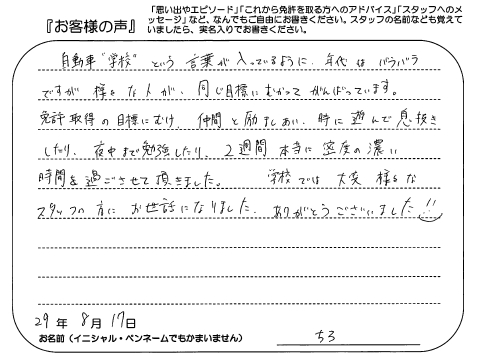 『お客様の声』
「思い出やエピソード」「これから免許を取る方へのアドバイス」「スタッフへのメ
ッセージ」など、なんでもご自由にお書きください。スタッフの名前なども覚えて
いましたら、実名入りでお書きください。
自動車"学校"という言葉が入っているように、年代はバラバラ
ですが様々な人が、同じ目標にむかってがんばっています。
免許取得の目標にむけ、仲間と励ましあい、時に遊んで息抜き
したり、夜中まで勉強したり、2週間本当に密度の濃い
時間を過ごさせて頂きました。学校では大変様々な
スタッフの方にお世話になりました。ありがとうございました!!
29年8月17日
お名前(イニシャル・ペンネームでもかまいません)
ちろ